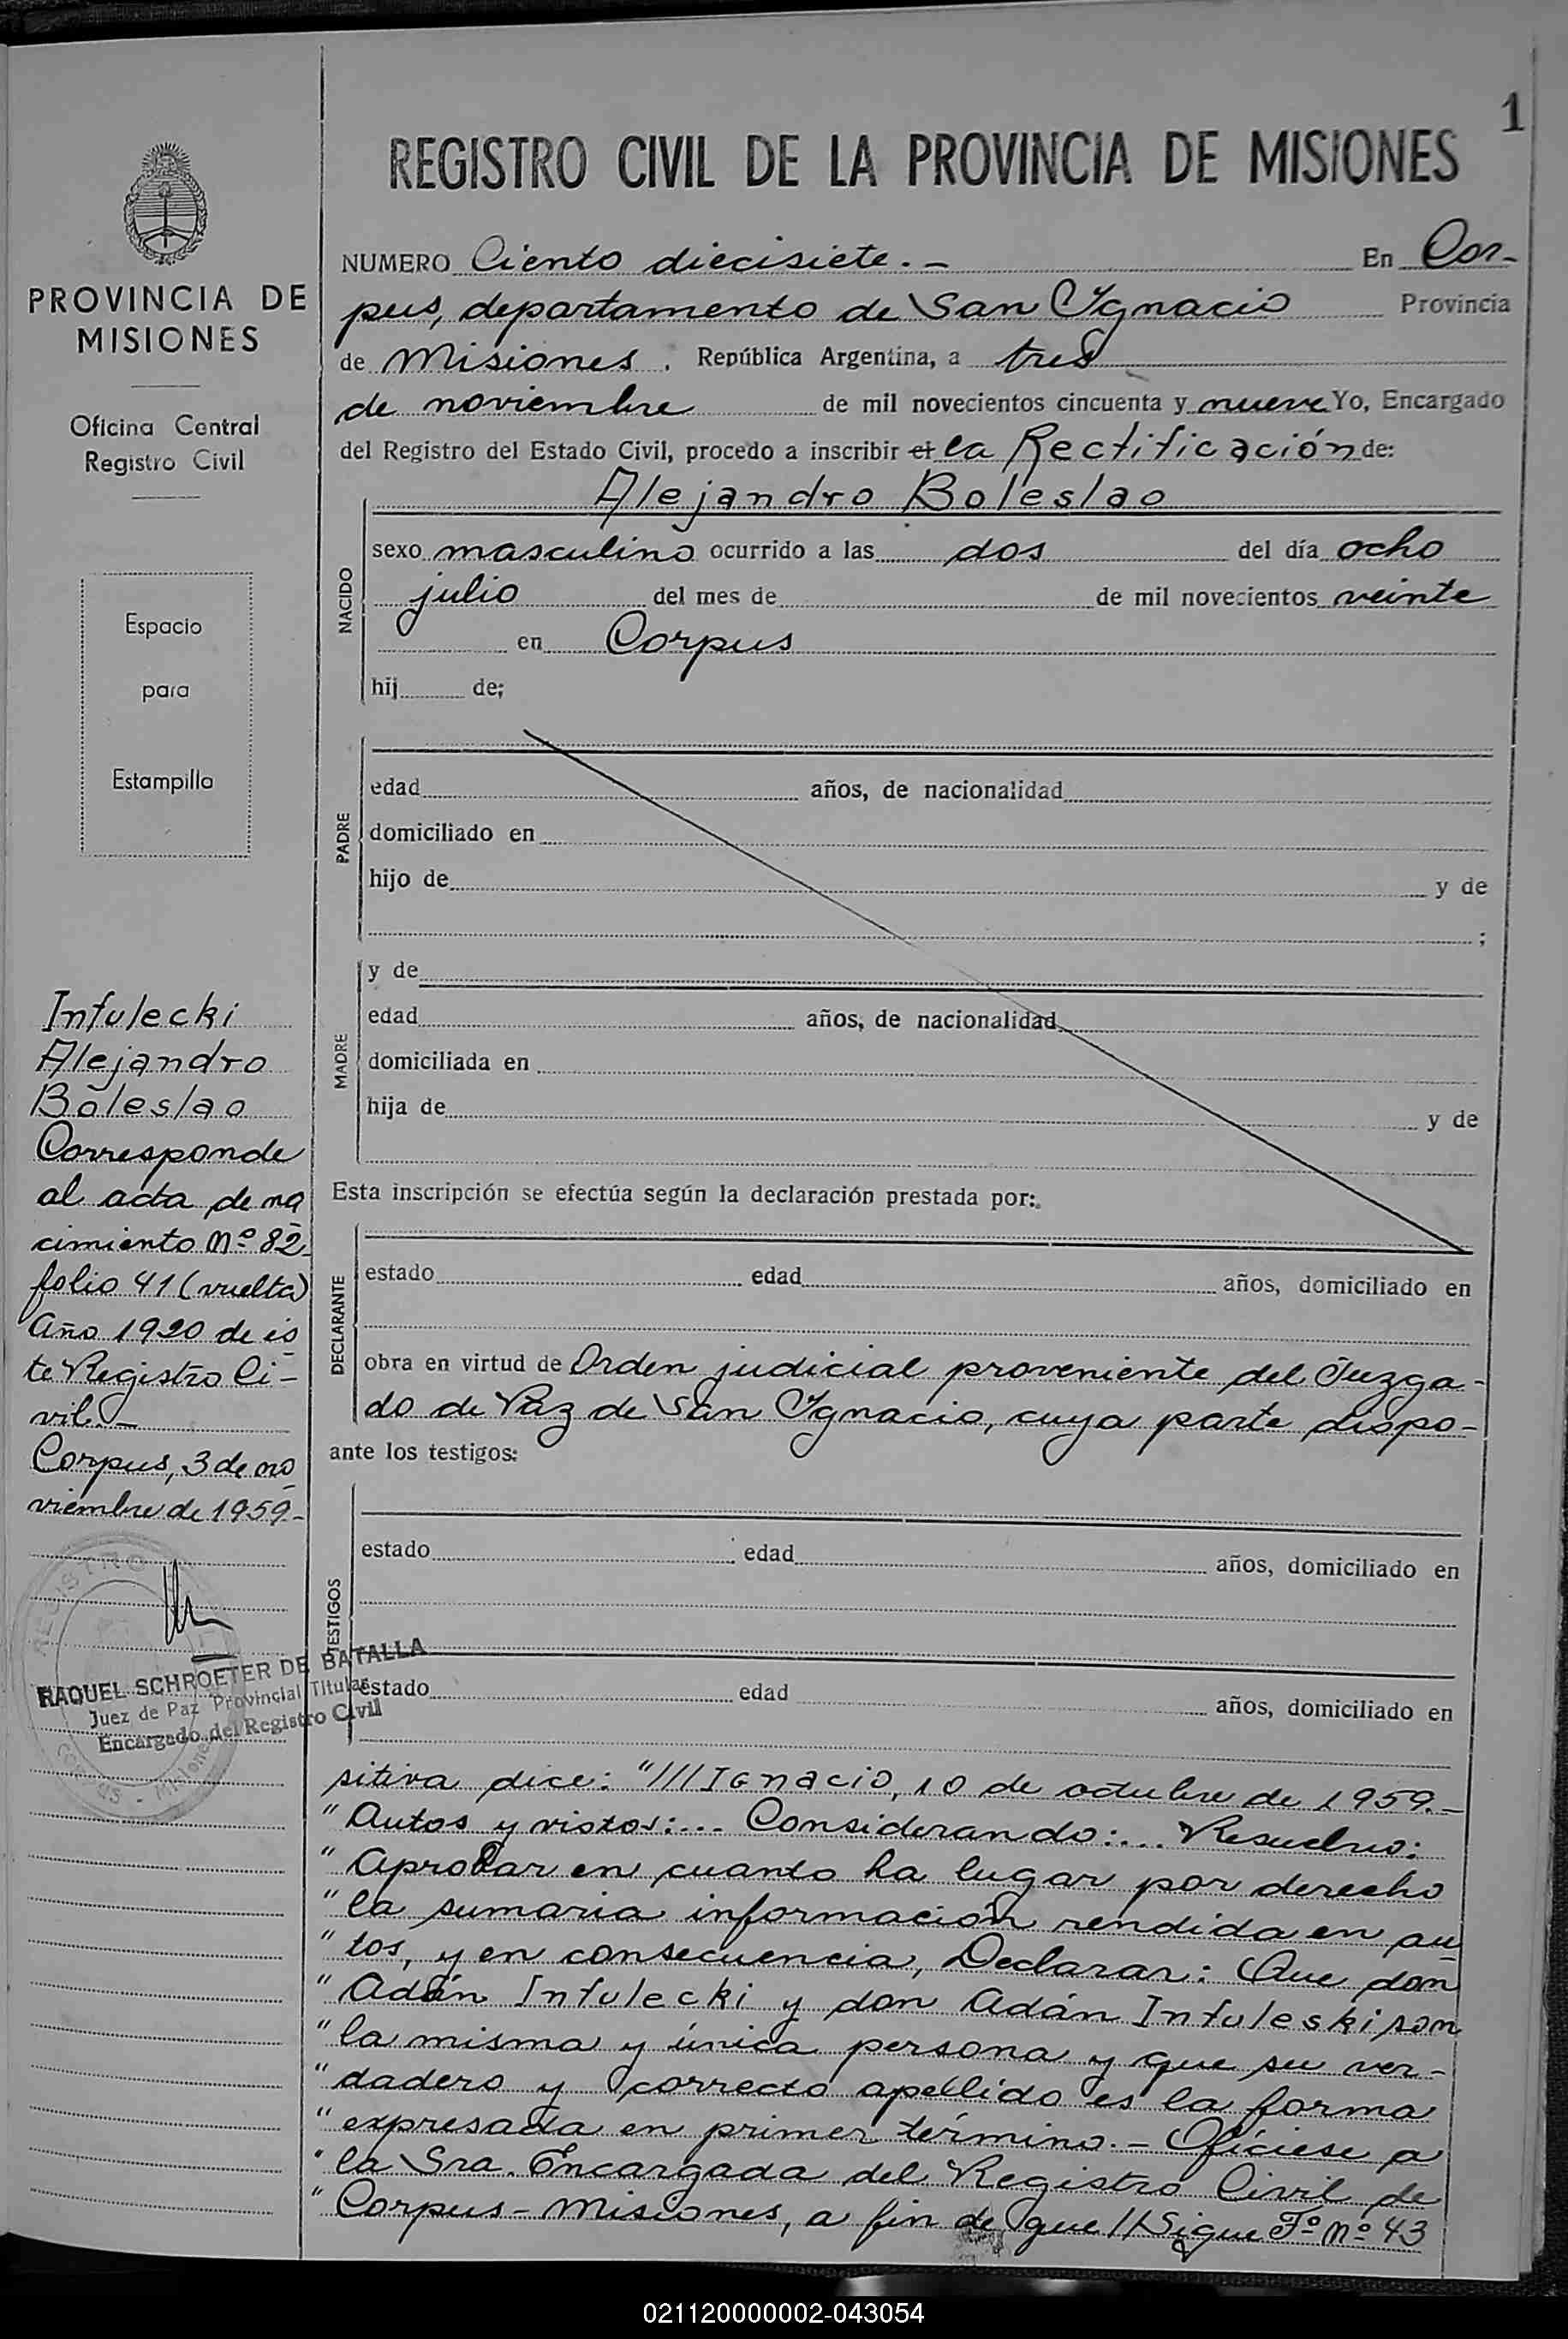 1
REGISTRO CIVIL DE LA PROVINCIA DE MISIONES
PROVINCIA DE
MISIONES
Oficina Central
Registro Civil
Espacio
para
Estampilla
Intulecki
Alejandro
Boleslao
Corresponde
al acta de na
cimiento Nº 82
folio 41 (vuelta)
Año 1920 de es
te Registro Ci-
vil.-
Corpus, 3 de no
viembre de 1959.-
REGISTRO
RAQUEL SCHROETER DE BATALLA
Juez de Paz Provincial Titular
Encargado del Registro Civil
CORPUS - Misiones
NUMERO Ciento diecisiete.- En Cor-
pus, departamento de San Ignacio Provincia
de Misiones. República Argentina, a tres
de noviembre de mil novecientos cincuenta y nueve Yo, Encargado
del Registro del Estado Civil, procedo a inscribir el la Rectificación de:
Alejandro Boleslao
NACIDO
sexo masculino ocurrido a las dos del día ocho
julio del mes de de mil novecientos veinte
en Corpus
hij de;
PADRE
edad años, de nacionalidad
domiciliado en
hijo de y de
;
MADRE
y de
edad años, de nacionalidad
domiciliada en
hija de y de
Esta inscripción se efectúa según la declaración prestada por:
DECLARANTE
estado edad años, domiciliado en
obra en virtud de Orden judicial proveniente del Juzga-
do de Paz de San Ignacio, cuya parte dispo-
ante los testigos:
TESTIGOS
estado edad años, domiciliado en
estado edad años, domiciliado en
sitiva dice: "///Ignacio, 10 de octubre de 1959.-
"Autos y vistos:... Considerando:... Resuelvo:
"Aprobar en cuanto ha lugar por derecho
"la sumaria información rendida en au
"tos, y en consecuencia, Declarar: Que don
"Adán Intulecki y don Adán Intuleski son
"la misma y única persona y que su ver-
"dadero y correcto apellido es la forma
"expresada en primer término.- Ofíciese a
"la Sra. Encargada del Registro Civil de
"Corpus-Misiones, a fin de que //Sigue Fº Nº 43
021120000002-043054